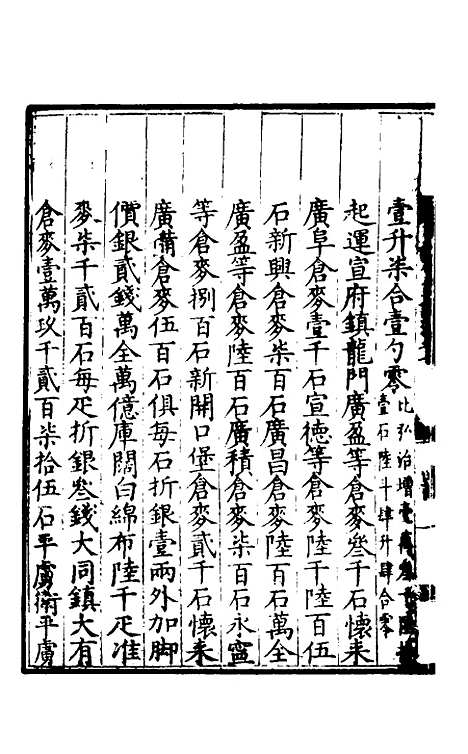 壹升柒合壹勺零比弘治增壹萬叁千
壹石陸斗肆升肆合零
起運宣府鎮龍門廣盈等倉麥叁千石懷來
廣阜倉麥壹千石宣德等倉麥陸千陸百伍
石新興倉麥柒百石廣昌倉麥陸百石萬全
廣盈等倉麥陸百石廣積倉麥柒百石永寧
等倉麥捌百石新開口堡倉麥貳千石懷來
廣備倉麥伍百石俱每石折銀壹兩外加脚
價銀貳錢萬全萬億庫闊白綿布陸千疋准
麥柒千貳百石每疋折銀叁錢大同鎮大有
倉麥壹萬玖千貳百柒拾伍石平虜衛平虜